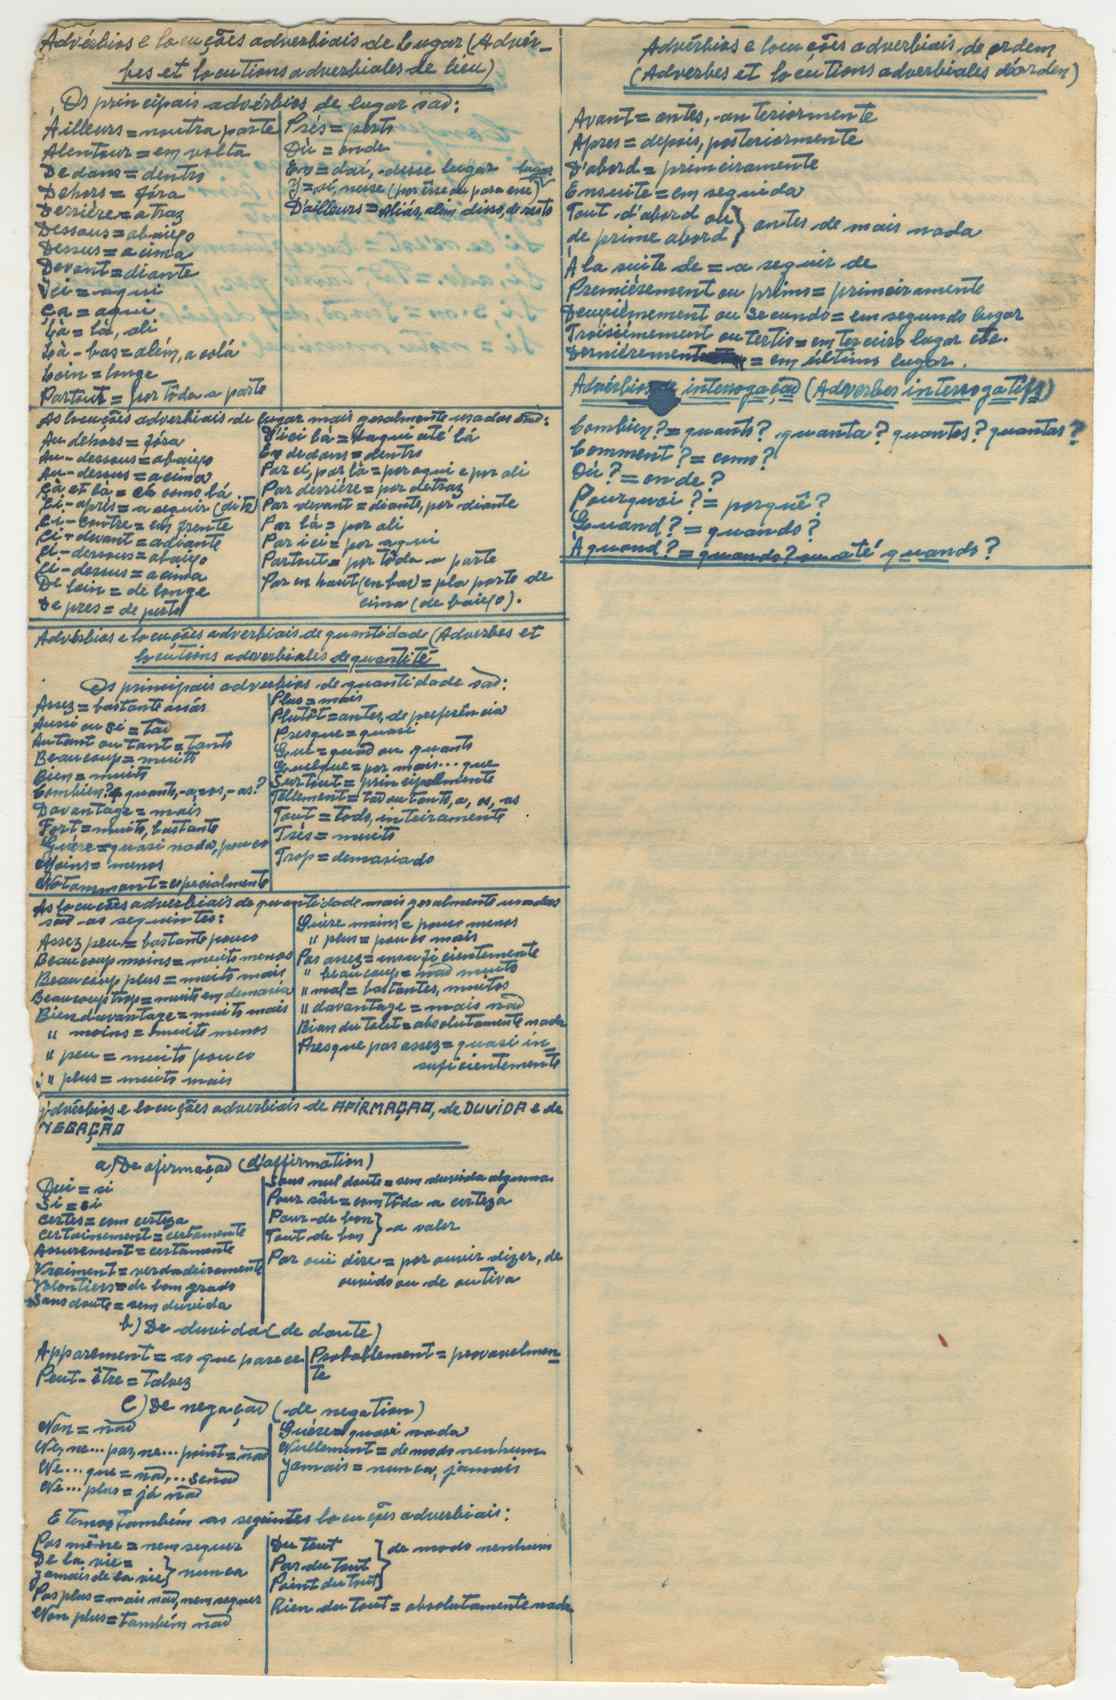 Advérbios e locuções adverbiais de lugar (Advér-
bes et locutions adverbiales de lieu)
Os principais advérbios de lugar são:
Ailleurs = noutra parte
Alentour = em volta
Dedans = dentro
Dehors = fóra
Derriére = atraz
Dessous = abaixo
Dessus = acima
Devant = diante
Ici = aqui
Ça = aqui
Là = lá, ali
Là-bas = além, acolá
Loin = longe
Partout = por tôda a parte
Prés = perto
Où = onde
En = daí, desse lugar
Y = aí, nisse (por êsse ou para esse) lugar
D'ailleurs = aliás, além disso, de resto
As locuções adverbiais de lugar mais geralmente usadas são:
Au dehors = fóra
Au-dessous = abaixo
Au-dessus = acima
Çà et là = cá como lá
Ci-aprés = a seguir (dito)
Ci-contre = em frente
Ci-devant = adiante
Ci-dessous = abaixo
Ci-dessus = acima
De loin = de longe
De pres = de perto
D'ici là = daqui até lá
En dedans = dentro
Par ci, par là = por aqui e por ali
Par derriére = por detraz
Par devant = diante, por diante
Par là = por ali
Par ici = por aqui
Partout = por tôda a parte
Par en haut (en bas) = pla parte de
cima (de baixo).
Advérbios e locuções adverbiais de quantidade (Adverbes et
locutions adverbiales de quantité
Os principais adverbios de quantidade são:
Assez = bastante assás
Aussi ou si = tão
Autant ou tant = tanto
Beaucoup = muito
Bien = muito
Combien? = quanto, -a, -os, -as?
Davantage = mais
Fort = muito, bastante
Guère = quási nada, pouco
Moins = menos
Notamment = especialmente
Plus = mais
Plutôt = antes, de preferência
Presque = quasi
Que = quão ou quanto
Quelque = por mais... que
Surtout = principalmente
Tellement = tão ou tanto, a, os, as
Tout = todo, inteiramente
Trés = muito
Trop = demasiado
As locuções adverbiais de quantidade mais geralmente usadas
são as seguintes:
Assez peu = bastante pouco
Beaucoup moins = muito menos
Beaucoup plus = muito mais
Beaucoup trop = muito em demasia
Bien davantage = muito mais
" moins = muito menos
" peu = muito pouco
" plus = muito mais
Guère moins = pouco menos
" plus = pouco mais
Pas assez = insuficientemente
" beaucoup = não muito
" mal = bastantes, muitos
" davantage = mais não
Rien du tout = absolutamente nada
Presque pas assez = quasi in-
suficientemente
Advérbios e locuções adverbiais de AFIRMAÇÃO, de DUVIDA e de
NEGAÇÃO
a) De afirmação (d'affirmation)
Oui = si
Si = si
Certes = com certeza
Certainement = certamente
Assurement = certamente
Vraiment = verdadeiramente
Volontiers = de bom grado
Sans doute = sem duvida
Sans nul doute = sem duvida alguma
Pour sûr = com tôda a certeza
Pour de bon
Tout de bon } a valer
Par ouï dire = por ouvir dizer, de
ouvido ou de outiva
b) De duvida (de doute)
Apparement = ao que parece
Peut-être = talvez
Probablement = provavelmen-
te
C) De negação (de negation)
Non = não
Ne, ne... pas, ne... point = não
Ne... que = não,... senão
Ne... plus = já não
Guére = quasi nada
Nullement = de modo nenhum
Jamais = nunca, jamais
E temos também as seguintes locuções adverbiais:
Pas même = nem sequer
De la vie =
Jamais de la vie } nunca
Pas plus = mais não, nem sequer
Non plus = também não
Du tout
Pas du tout } de modo nenhum
Point du tout
Rien du tout = absolutamente nada
Advérbios e locuções adverbiais de ordem
(Adverbes et locutions adverbiales d'orden)
Avant = antes, anteriormente
Apres = depois, posteriormente
D'abord = primeiramente
Ensuite = em seguida
Tout d'abord ou
de prime abord } antes de mais nada
À la suite de = a seguir de
Premiérement ou primo = primeiramente
Deuxiémement ou secundo = em segundo lugar
Troisiémement ou tertio = em terceiro lugar etc.
Derniérement = em último lugar.
Advérbios de interrogação (Adverbes interrogatifs)
Combien? = quanto? quanta? quantos? quantas?
Comment? = como?
Où? = onde?
Pourquoi? = porquê?
Quand? = quando?
À quand? = quando? ou até quando?